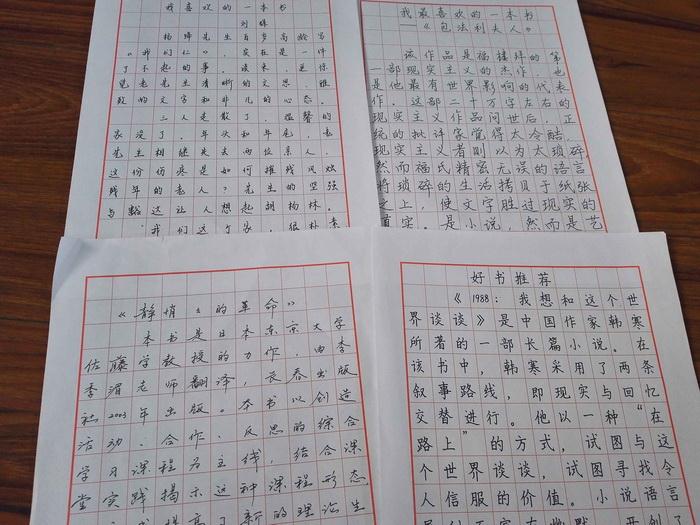 我喜欢的一本书
刘峰
杨绛先生百岁高龄写
《我们仨》，实在是一件
了不起的事。读来，更惊
觉老先生清晰的文思，雅
致的文字和非凡的心态。
三人走散了，温馨的
家没了。年头和年尾，老
先生相继失去两位亲人，
这份伤痛是如何摧残风烛
残年的老人？先生的坚强
与豁达让人想起胡杨林。
我们这个家，很朴素
我最喜欢的一本书
——《包法利夫人》
该作品是福楼拜的第
一部现实主义的杰作，也
是他最有世界影响的代表
作。这部二十万字左右的
现实主义作品问世后，正
统的批评家觉得太冷酷，
现实主义者则以为太琐碎，
然而福氏精密无误的语言
将琐碎的生活拷贝于纸张
之上，使文字胜过现实的
真实。是小说，然而是艺
《静悄悄的革命》
本书是日本东京大学
佐藤学教授的力作，由李
季湄老师翻译，长春出版
社2003年出版。本书以创造
活动、合作、反思的综合
学习课程为主线，结合课
堂实践揭示这种课程形态
好书推荐
《1988：我想和这个世
界谈谈》是中国作家韩寒
所著的一部长篇小说。在
该书中，韩寒采用了两条
叙事路线，即现实与回忆
交替进行。他以一种“在
路上”的方式，试图与这
个世界谈谈，试图寻找令
人信服的价值。小说语言